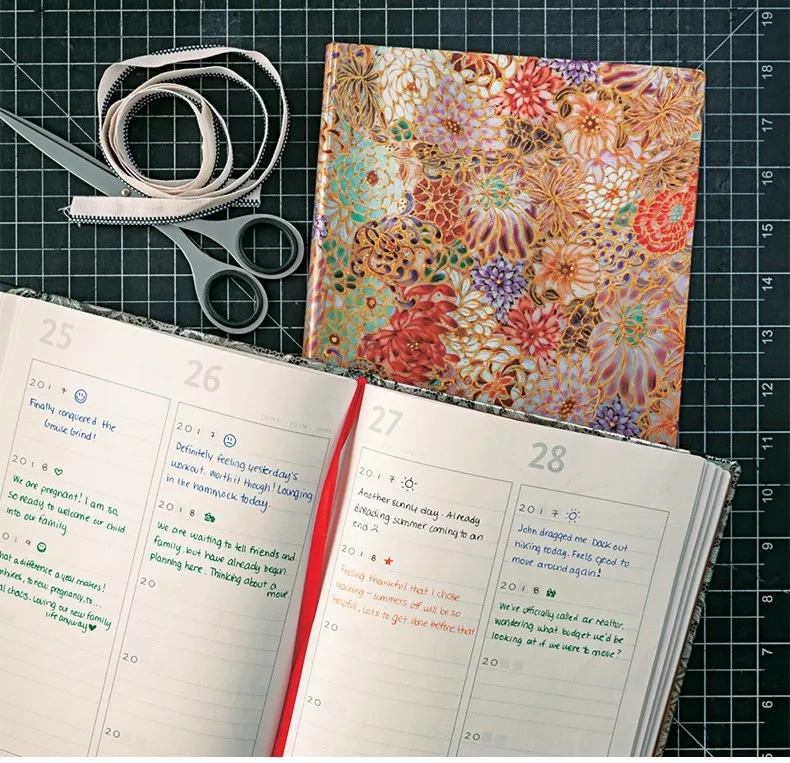 25
2017
Finally conquered the
Grouse Grind!
2018
We are pregnant! I am so,
so ready to welcome our child
into our family.
019
hat a difference a year makes!
hikes, to new pregnancy, to...
al chaos. Loving our new family
life anyway
26
JUNE JUIN JUNI
2017
Definitely feeling yesterday's
workout. worth it though! Lounging
in the hammock today.
2018
We are waiting to tell friends and
family, but have already begun
planning here. Thinking about a
move
20
20
20
27
2017
Another sunny day. Already
dreading summer coming to an
end
2018
Feeling thankful that I chose
teaching - summers off will be so
helpful. Lots to get done before that
20
20
28
2017
John dragged me back out
hiking today. Feels good to
move around again!
2018
We've officially called our realtor.
wondering what budget we'd be
looking at if we were to move?
20
20
19
18
17
16
15
14
13
12
11
10
9
8
7
6
5